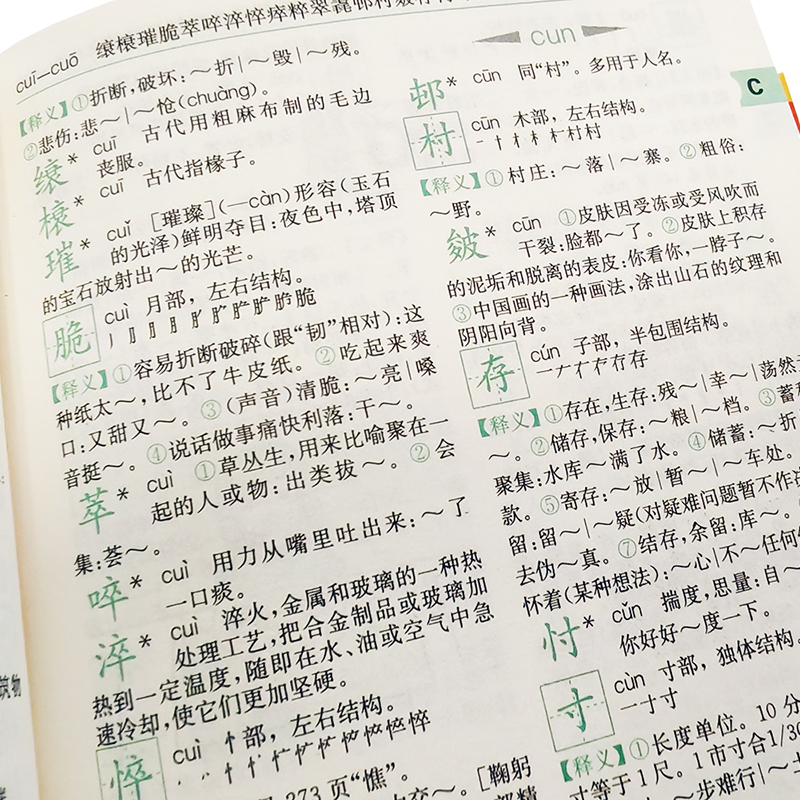 cuī—cuō 缞榱璀脆萃啐淬悴瘁粹翠毳邨村皴存
【释义】①折断,破坏:～折|～毁|～残。
②悲伤:悲～|～怆(chuàng)。
缞* cuī 古代用粗麻布制的毛边
丧服。
榱* cuī 古代指椽子。
璀* cuǐ [璀璨](—càn)形容(玉石
的光泽)鲜明夺目:夜色中,塔顶
的宝石放射出～的光芒。
脆 cuì 月部,左右结构。
【释义】①容易折断破碎(跟“韧”相对):这
种纸太～,比不了牛皮纸。②吃起来爽
口:又甜又～。③(声音)清脆:～亮|嗓
音挺～。④说话做事痛快利落:干～。
萃* cuì ①草丛生,用来比喻聚在一
起的人或物:出类拔～。②会
集:荟～。
啐* cuì 用力从嘴里吐出来:～了
一口痰。
淬* cuì 淬火,金属和玻璃的一种热
处理工艺,把合金制品或玻璃加
热到一定温度,随即在水、油或空气中急
速冷却,使它们更加坚硬。
悴 cuì 忄部,左右结构。
273页“憔”。
[鞠躬
cun
C
邨* cūn 同“村”。多用于人名。
村 cūn 木部,左右结构。
一十才木村村村
【释义】①村庄:～落|～寨。②粗俗:
～野。
皴* cūn ①皮肤因受冻或受风吹而
干裂:脸都～了。②皮肤上积存
的泥垢和脱离的表皮:你看你,一脖子～。
③中国画的一种画法,涂出山石的纹理和
阴阳向背。
存 cún 子部,半包围结构。
【释义】①存在,生存:残～|幸～|荡然
～。②储存,保存:～粮|～档。③蓄
聚集:水库～满了水。④储蓄:～折
款。⑤寄存:～放|暂～|～车处。
留:留～|～疑(对疑难问题暂不作
去伪～真。⑦结存,余留:库～。
怀着(某种想法):～心|不～任何
忖* cǔn 揣度,思量:自～
你好好～度一下。
寸 cùn 寸部,独体结构。
一寸寸
【释义】①长度单位。10分
寸等于1尺。1市寸合1/30
～步难行|～土